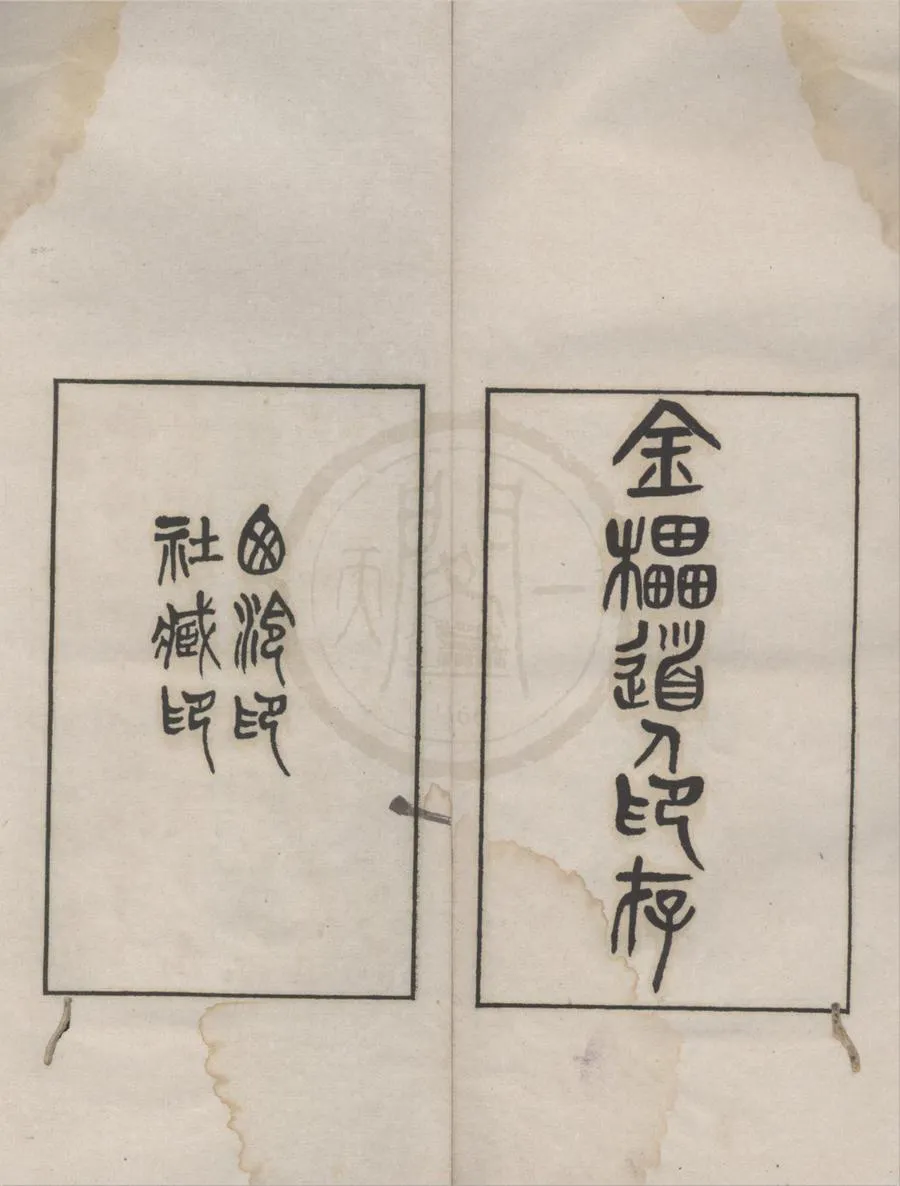 金櫑道人印存
西泠印
社藏印